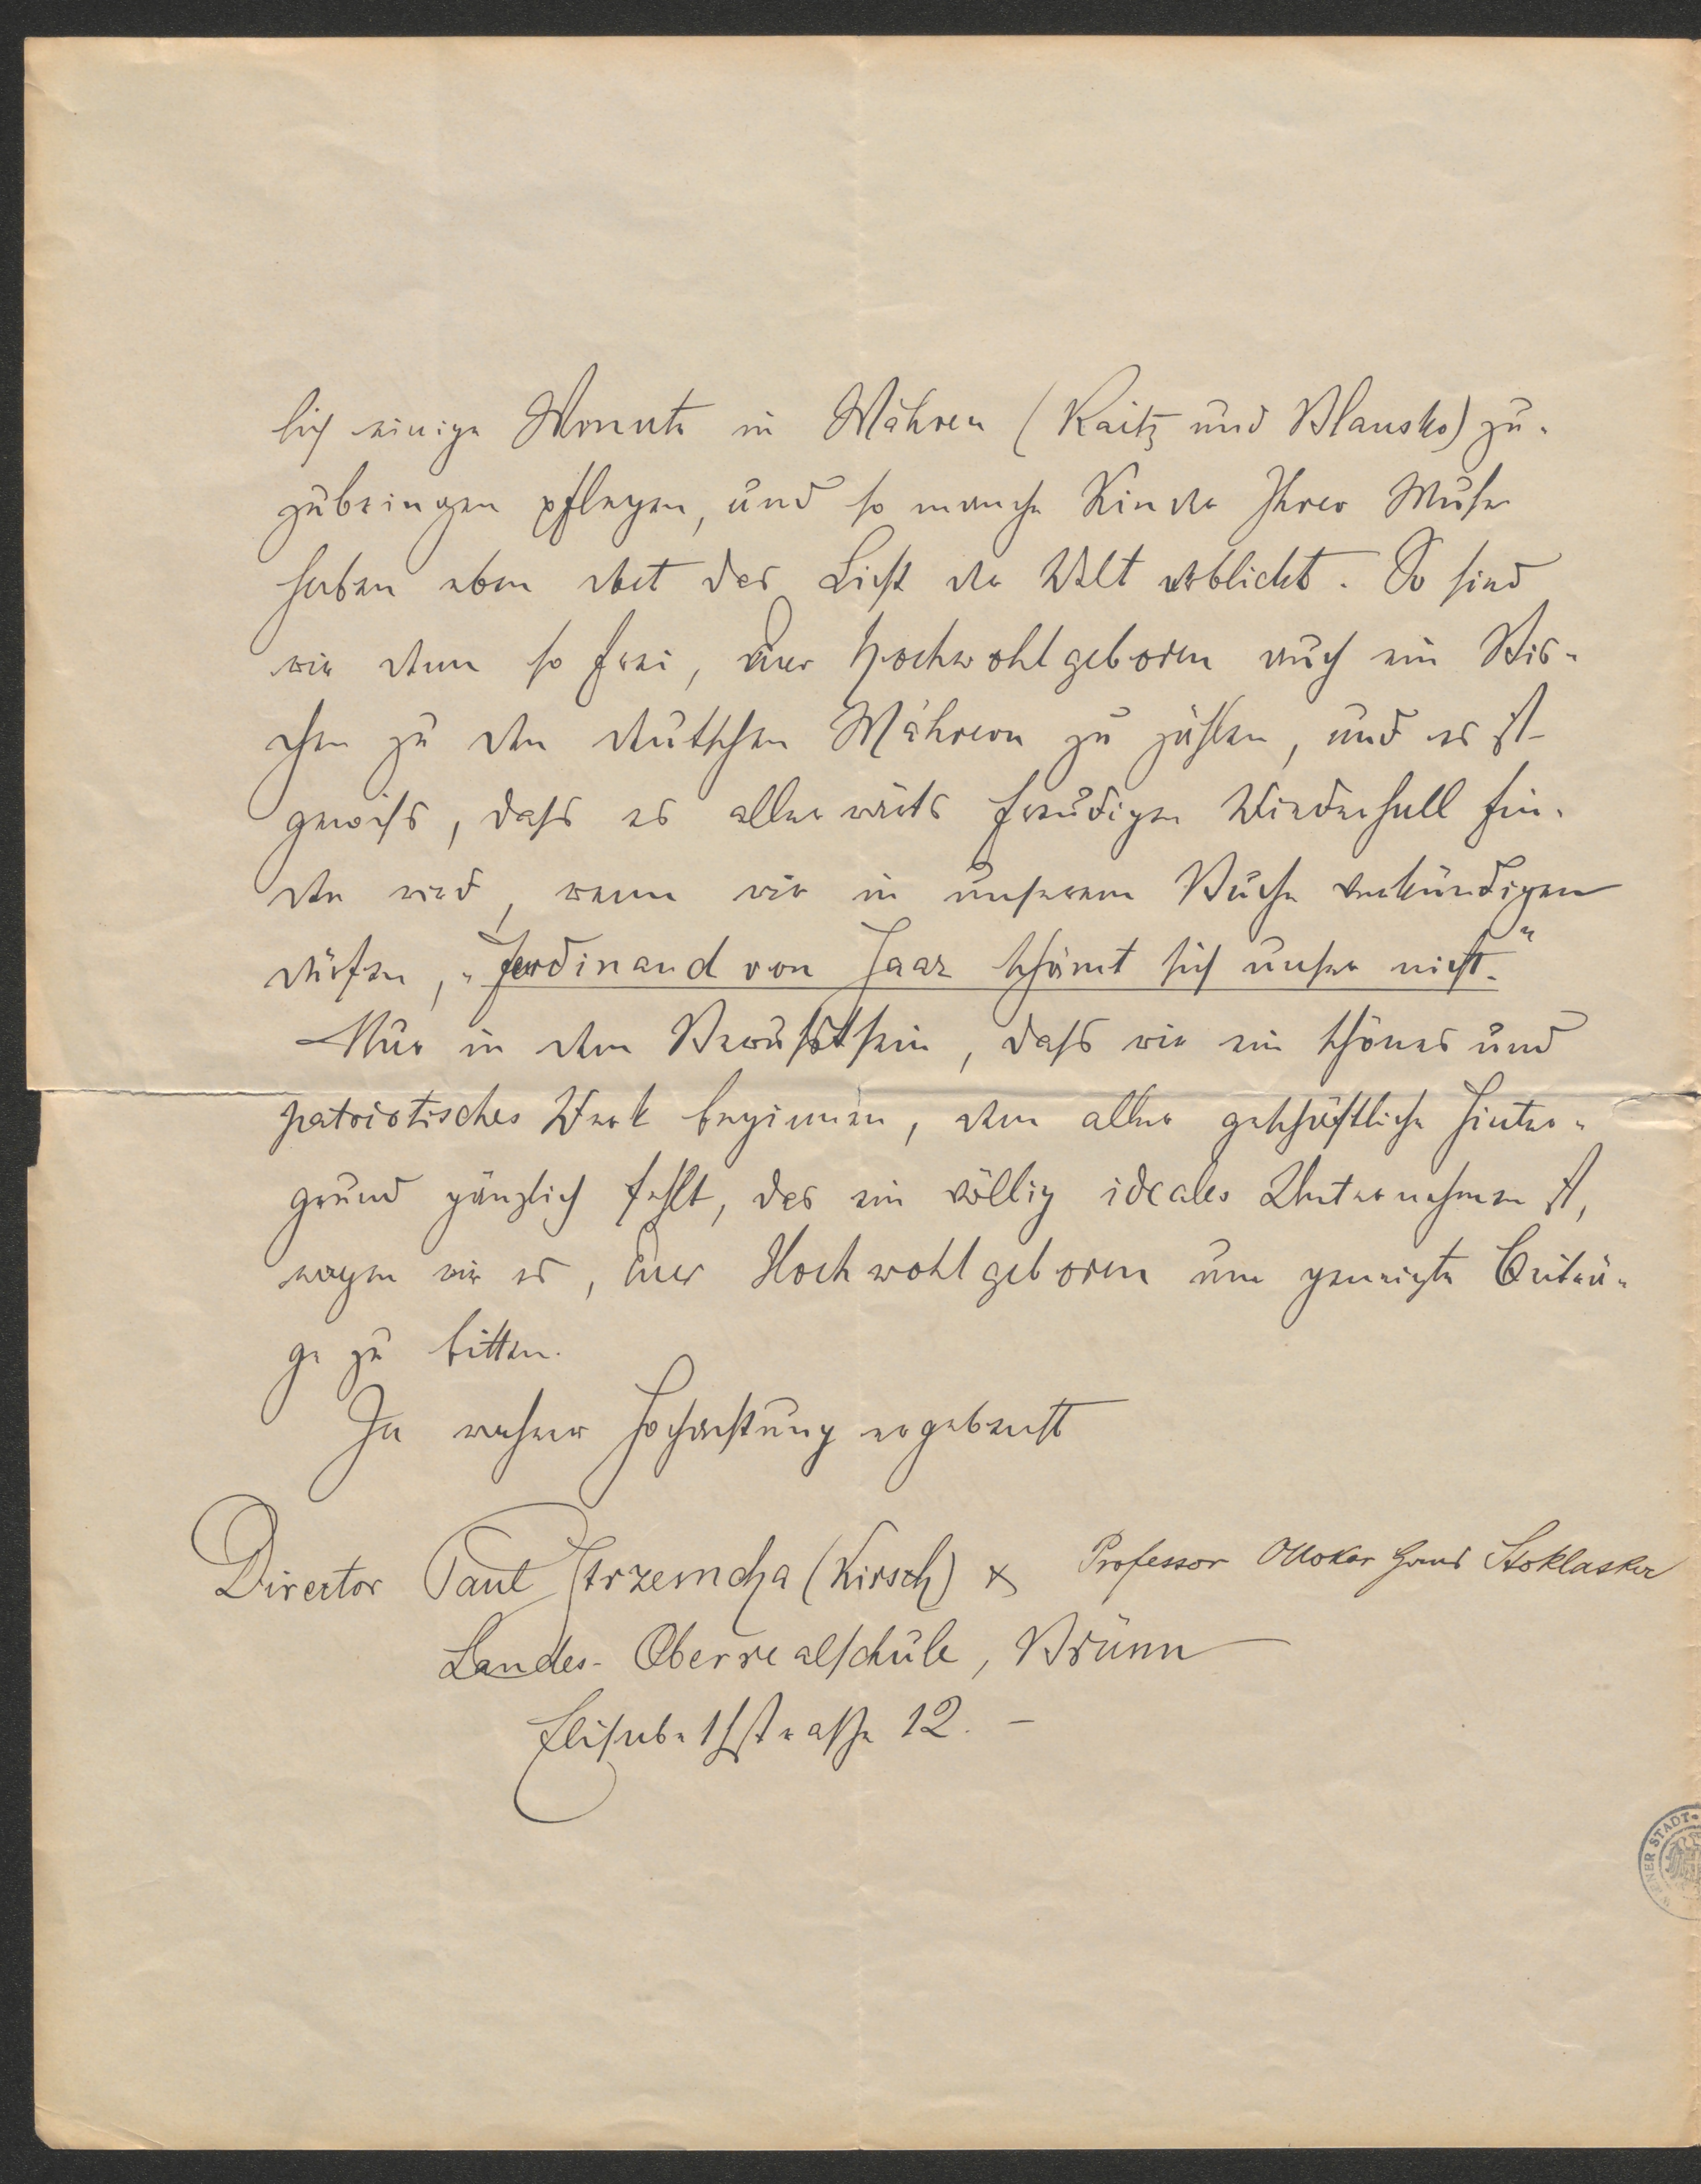 lich einige Monate in Mähren (Raitz und Blansko) zu-
zubringen pflegen, und so manche Kinder Ihrer Muse
haben eben dort das Licht der Welt erblickt. So sind
wir denn so frei, Euer Hochwohlgeboren auch ein Bis-
chen zu den deutschen Mährern zu zählen, und es ist
gewiss, dass es allerwärts freudigen Wiederhall fin-
den wird, wenn wir in unserem Buche verkündigen
dürfen, „Ferdinand von Saar schämt sich unser nicht."
Nur in dem Bewusstsein, dass wir ein schönes und
patriotisches Werk beginnen, dem aller geschäftliche Hinter-
grund gänzlich fehlt, das ein völlig ideales Unternehmen ist,
wagen wir es, Euer Hochwohlgeboren um geneigte Beiträ-
ge zu bitten.
In wahrer Hochachtung ergebenst
Director Paul Strzemcha (Kirsch) & Professor Ottokar Hans Stoklaska
Landes-Oberrealschule, Brünn
Elisabethstraße 12. –
WIENER STADT-